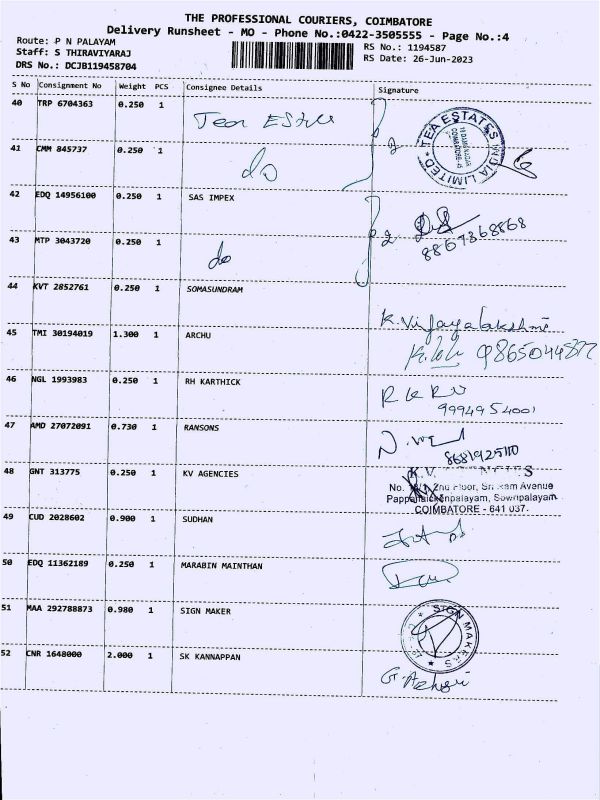 THE PROFESSIONAL COURIERS, COIMBATORE
Delivery Runsheet - MO - Phone No.:0422-3505555 - Page No.:4
Route: P N PALAYAM
Staff: S THIRAVIYARAJ
DRS No.: DCJB119458704
RS No.: 1194587
RS Date: 26-Jun-2023
S No Consignment No Weight PCS Consignee Details Signature
40 TRP 6704363 0.250 1 Tea Estate
TEA ESTATES INDIA LIMITED
41 CMM 845737 0.250 1 do
2
42 EDQ 14956100 0.250 1 SAS IMPEX
8867368868
43 MTP 3043720 0.250 1 do
2
44 KVT 2852761 0.250 1 SOMASUNDRAM
K.Vijayalakshmi
45 TMI 30194019 1.300 1 ARCHU
46 NGL 1993983 0.250 1 RH KARTHICK
9994954001
47 AMD 27072091 0.730 1 RANSONS
8681925110
48 GNT 313775 0.250 1 KV AGENCIES
K.V. S
No. 2nd Floor, Sri Ram Avenue
Pappanaickenpalayam, Sowripalayam
COIMBATORE - 641 037.
49 CUD 2028602 0.900 1 SUDHAN
50 EDQ 11362189 0.250 1 MARABIN MAINTHAN
51 MAA 292788873 0.980 1 SIGN MAKER
SIGN MAKERS
52 CNR 1648000 2.000 1 SK KANNAPPAN